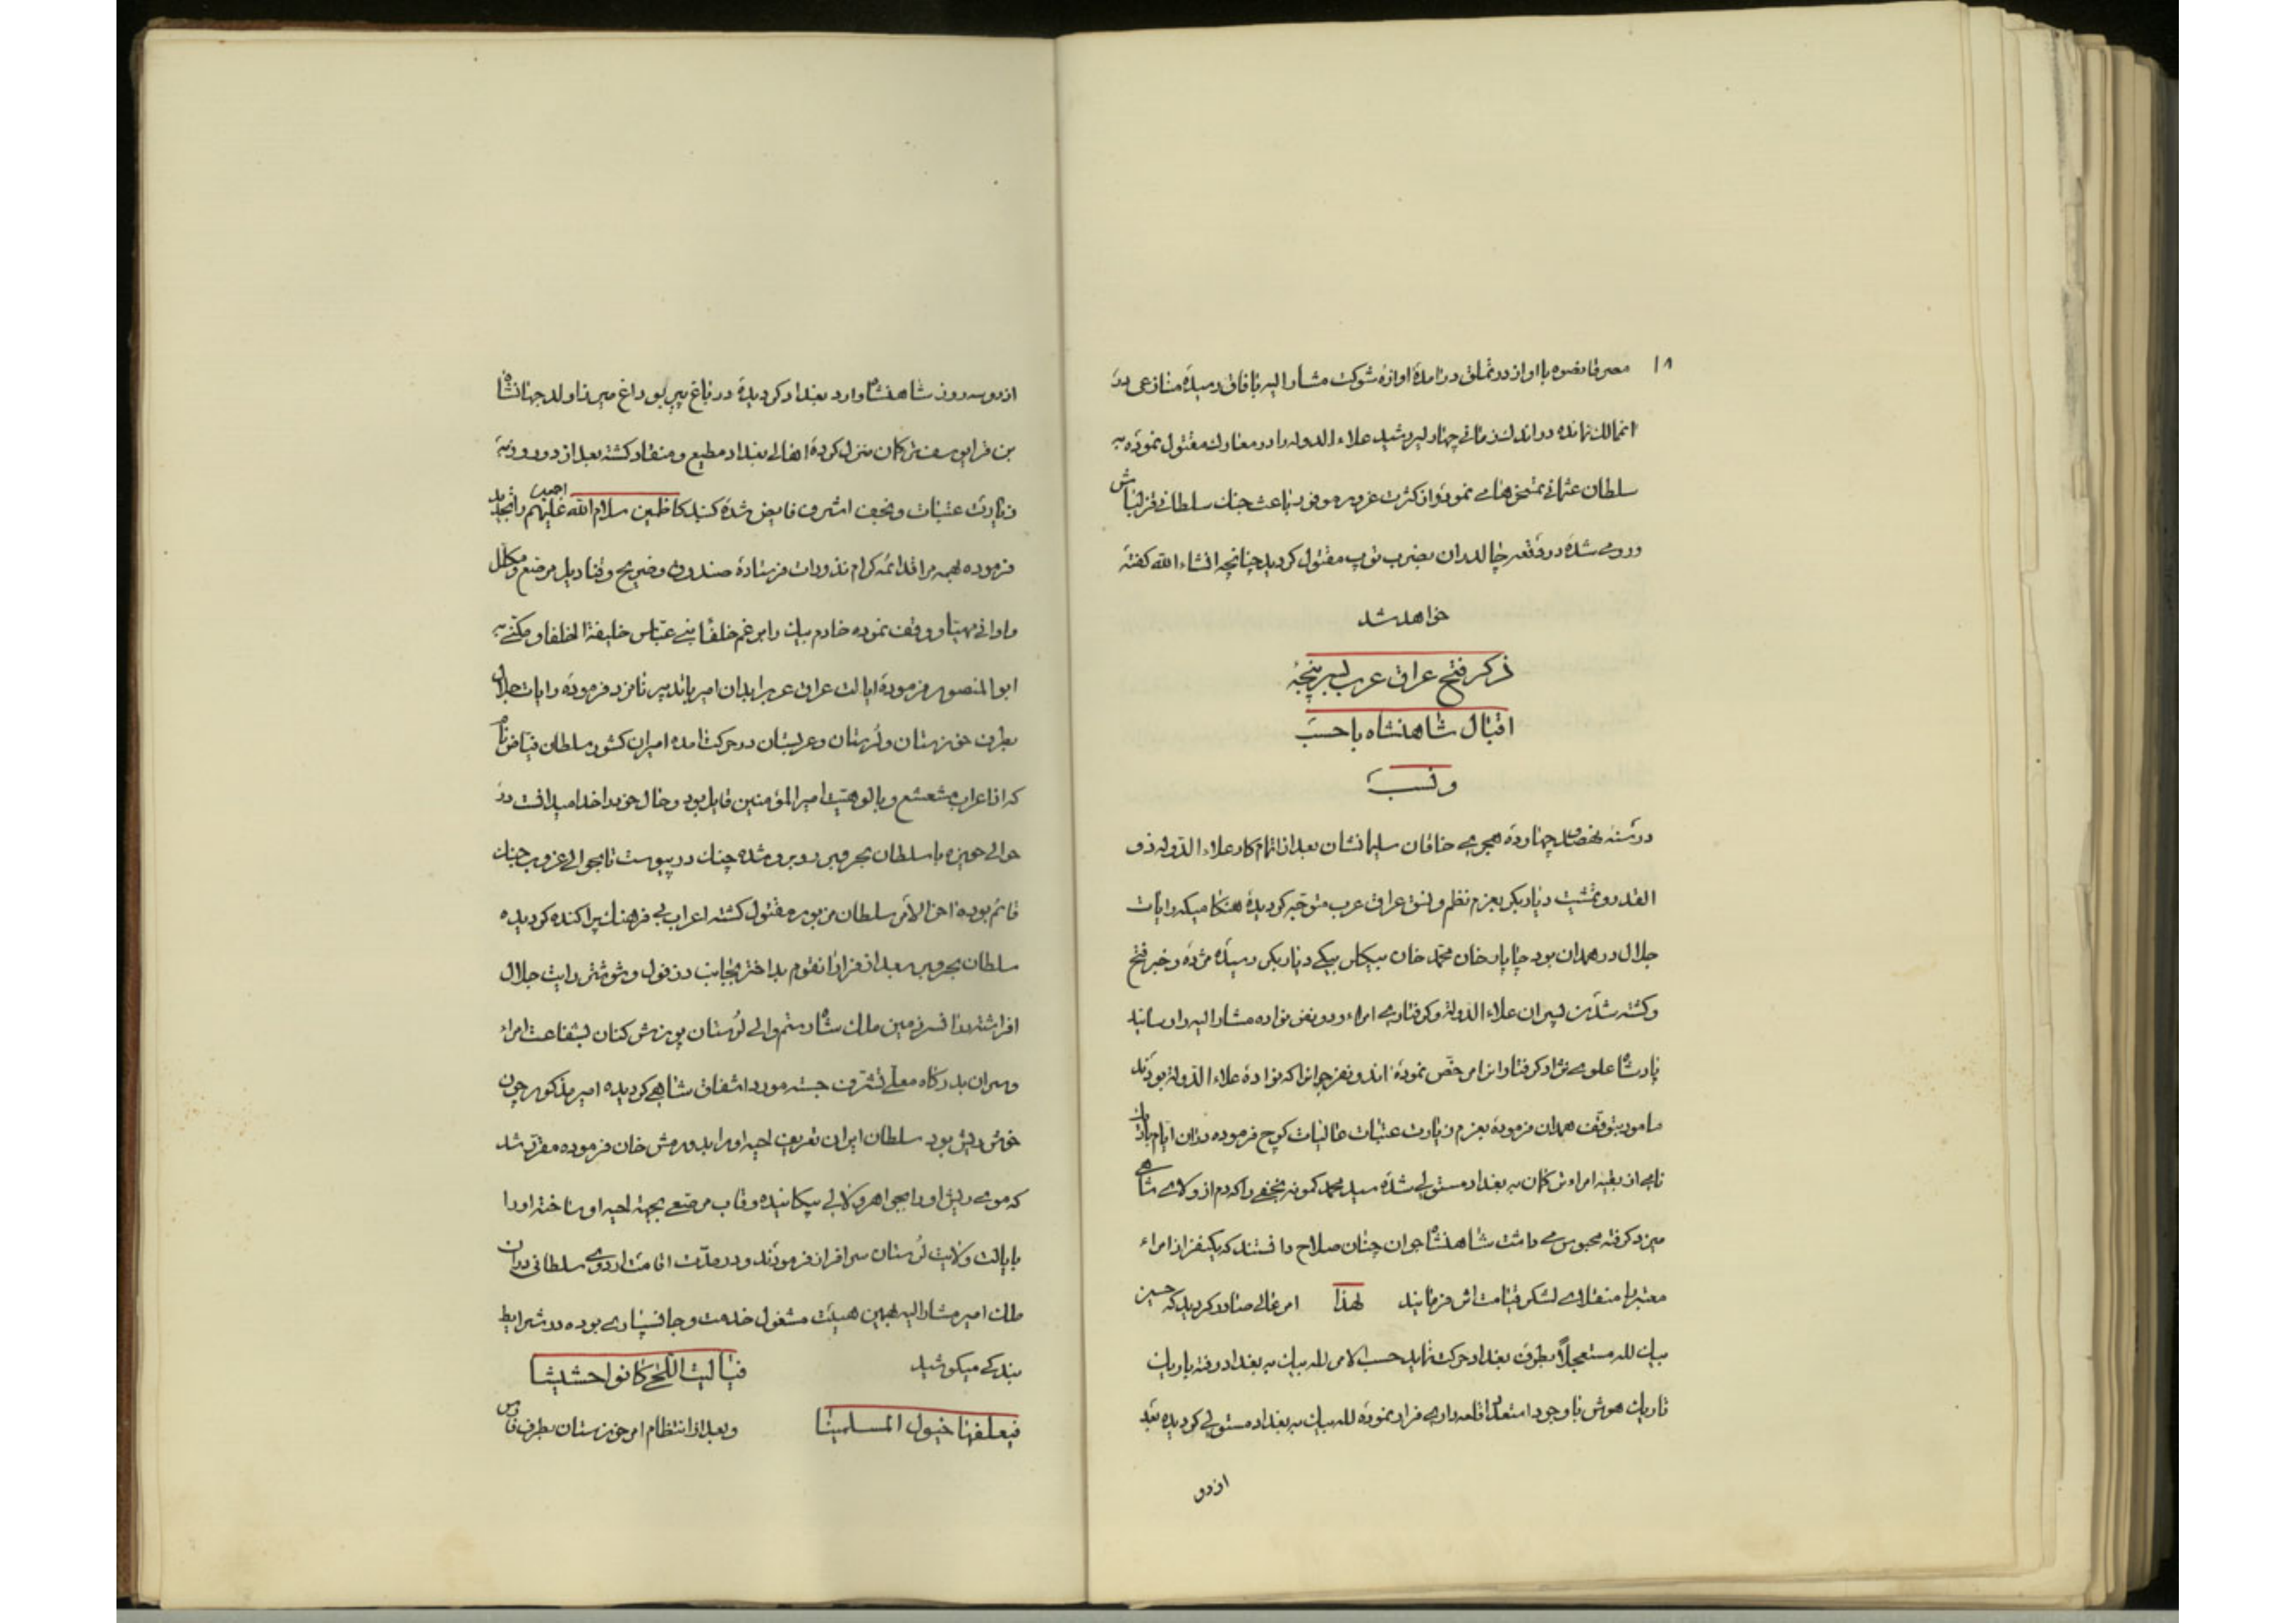 ۱۸
مصر قانصوه با او از در تملق در آمده آوازه شوکت مشار الیه بآفاق رسیده منازعی در
انممالک نمانده در اندک زمانی چهار پسر رشید علاء الدوله را در معارک مقتول نموده به
سلطان عثمانی نموده و از کثرت غرور موفور باعث جنک سلطان قزلباش
و رومی شده در وقعه چالدران بضرب توپ مقتول کردید چنانچه انشاء الله کفته
خواهد شد
ذکر فتح عراق عرب بسر پنجهٔ
اقبال شاهنشاه با حسب
و نسب
در سنه نهصد و چهارده هجری خاقان سلیمانشان بعد از اتمام کار علاء الدوله ذو
القدر و تمشیت دیار بکر بعزم نظم و نسق عراق عرب متوجه کردیده هنکامیکه رایات
جلال در همدان بود چاپار خان محمد خان بیکلر بیکی دیار بکر رسیده مژده و خبر فتح
و کشته شدن پسران علاء الدوله و کرفتاری امراء و دو نفر نواده مشار الیه را رسانید
پادشاه علوی نژاد کرفتاران را مرخص نموده اند و نفر جوانرا که نواده علاء الدوله بودند
مامور بتوقف همدان فرموده بعزم زیارت عتبات عالیات کوچ فرموده در آن ایام باریک
نامی از بقیه امراء ترکمان به بغداد مستولی شده سید محمد کمونه نجفی را که دم از ولای شاهی
میزد کرفته محبوس می داشت شاهنشاه جوان چنان صلاح دانستند که یکنفر از امراء
معتبر را منقلای لشکر قیامت اثر فرمایند لهذا امر عالی صادر کردید که حسین
بیک لله مستعجلاً بطرف بغداد حرکت نماید حسب الامر لله بیک به بغداد رفته باریک
تاریک هوش با وجود استعداد قلعه داری فرار نموده لله بیک به بغداد مستولی کردیده بعد
از دو
از دو سه روز شاهنشاه وارد بغداد کردیده در باغ پیر بوداغ میرزا ولد جهانشاه
بن قرا یوسف ترکمان منزل کرده اهالی بغداد مطیع و منقاد کشته بعد از دو روز به
زیارت عتبات و نجف اشرف فایض شده کنبد کاظمین سلام الله علیهم اجمعین را تجدید
فرموده بهمه مراقد ائمه کرام نذورات فرستاده صندوق و ضریح و قنادیل مرصع و مکلل
و اوانی مهیا و وقف نموده خادم بیک را بر غم خلفاء بنی عباس خلیفة الخلفا و مکنی به
ابو المنصور فرموده ایالت عراق عرب را بدان امیر باتدبیر نامزد فرموده رایات جلال
بطرف خوزستان و لرستان و عربستان در حرکت آمده امیران کشور سلطان فیاض نام
که از اعراب مشعشع و بالوهیت امیر المؤمنین قایل بود و حال خود را خدا میدانست در
حوالی حویزه با سلطان بحر و بر روبرو شده جنک در پیوست تا بحوالی غروب جنک
قائم بوده آخر الامر سلطان مزبور مقتول کشته اعراب بی فرهنک پراکنده کردیده
سلطان بحر و بر بعد از فرار آنقوم بد اختر بجانب دزفول و شوشتر رایت جلال
افراشته در آنسرزمین ملک شاه رستم والی لرستان پوزش کنان بشفاعت امراء
و سران بدرکاه معلی تشرف جسته مورد اشفاق شاهی کردیده امیر مذکور چون
خوش ریش بود سلطان ایران تعریف لحیه او را بدورمش خان فرموده مقرر شد
که موی ریش او را بجواهر و لالی پیکانیده و قاب مرصعی بجهة لحیه او ساخته او را
بایالت ولایت لرستان سرافراز فرمودند و در مدت اقامت اردوی سلطانی در آن
ملک امیر مشار الیه بهمین هیئت مشغول خدمت و جانسپاری بوده در شرایط
بندکی میکوشید فیا لیت اللحی کانوا حشیشا
فیعلفها خیول المسلمینا و بعد از انتظام امر خوزستان بطرف فارس